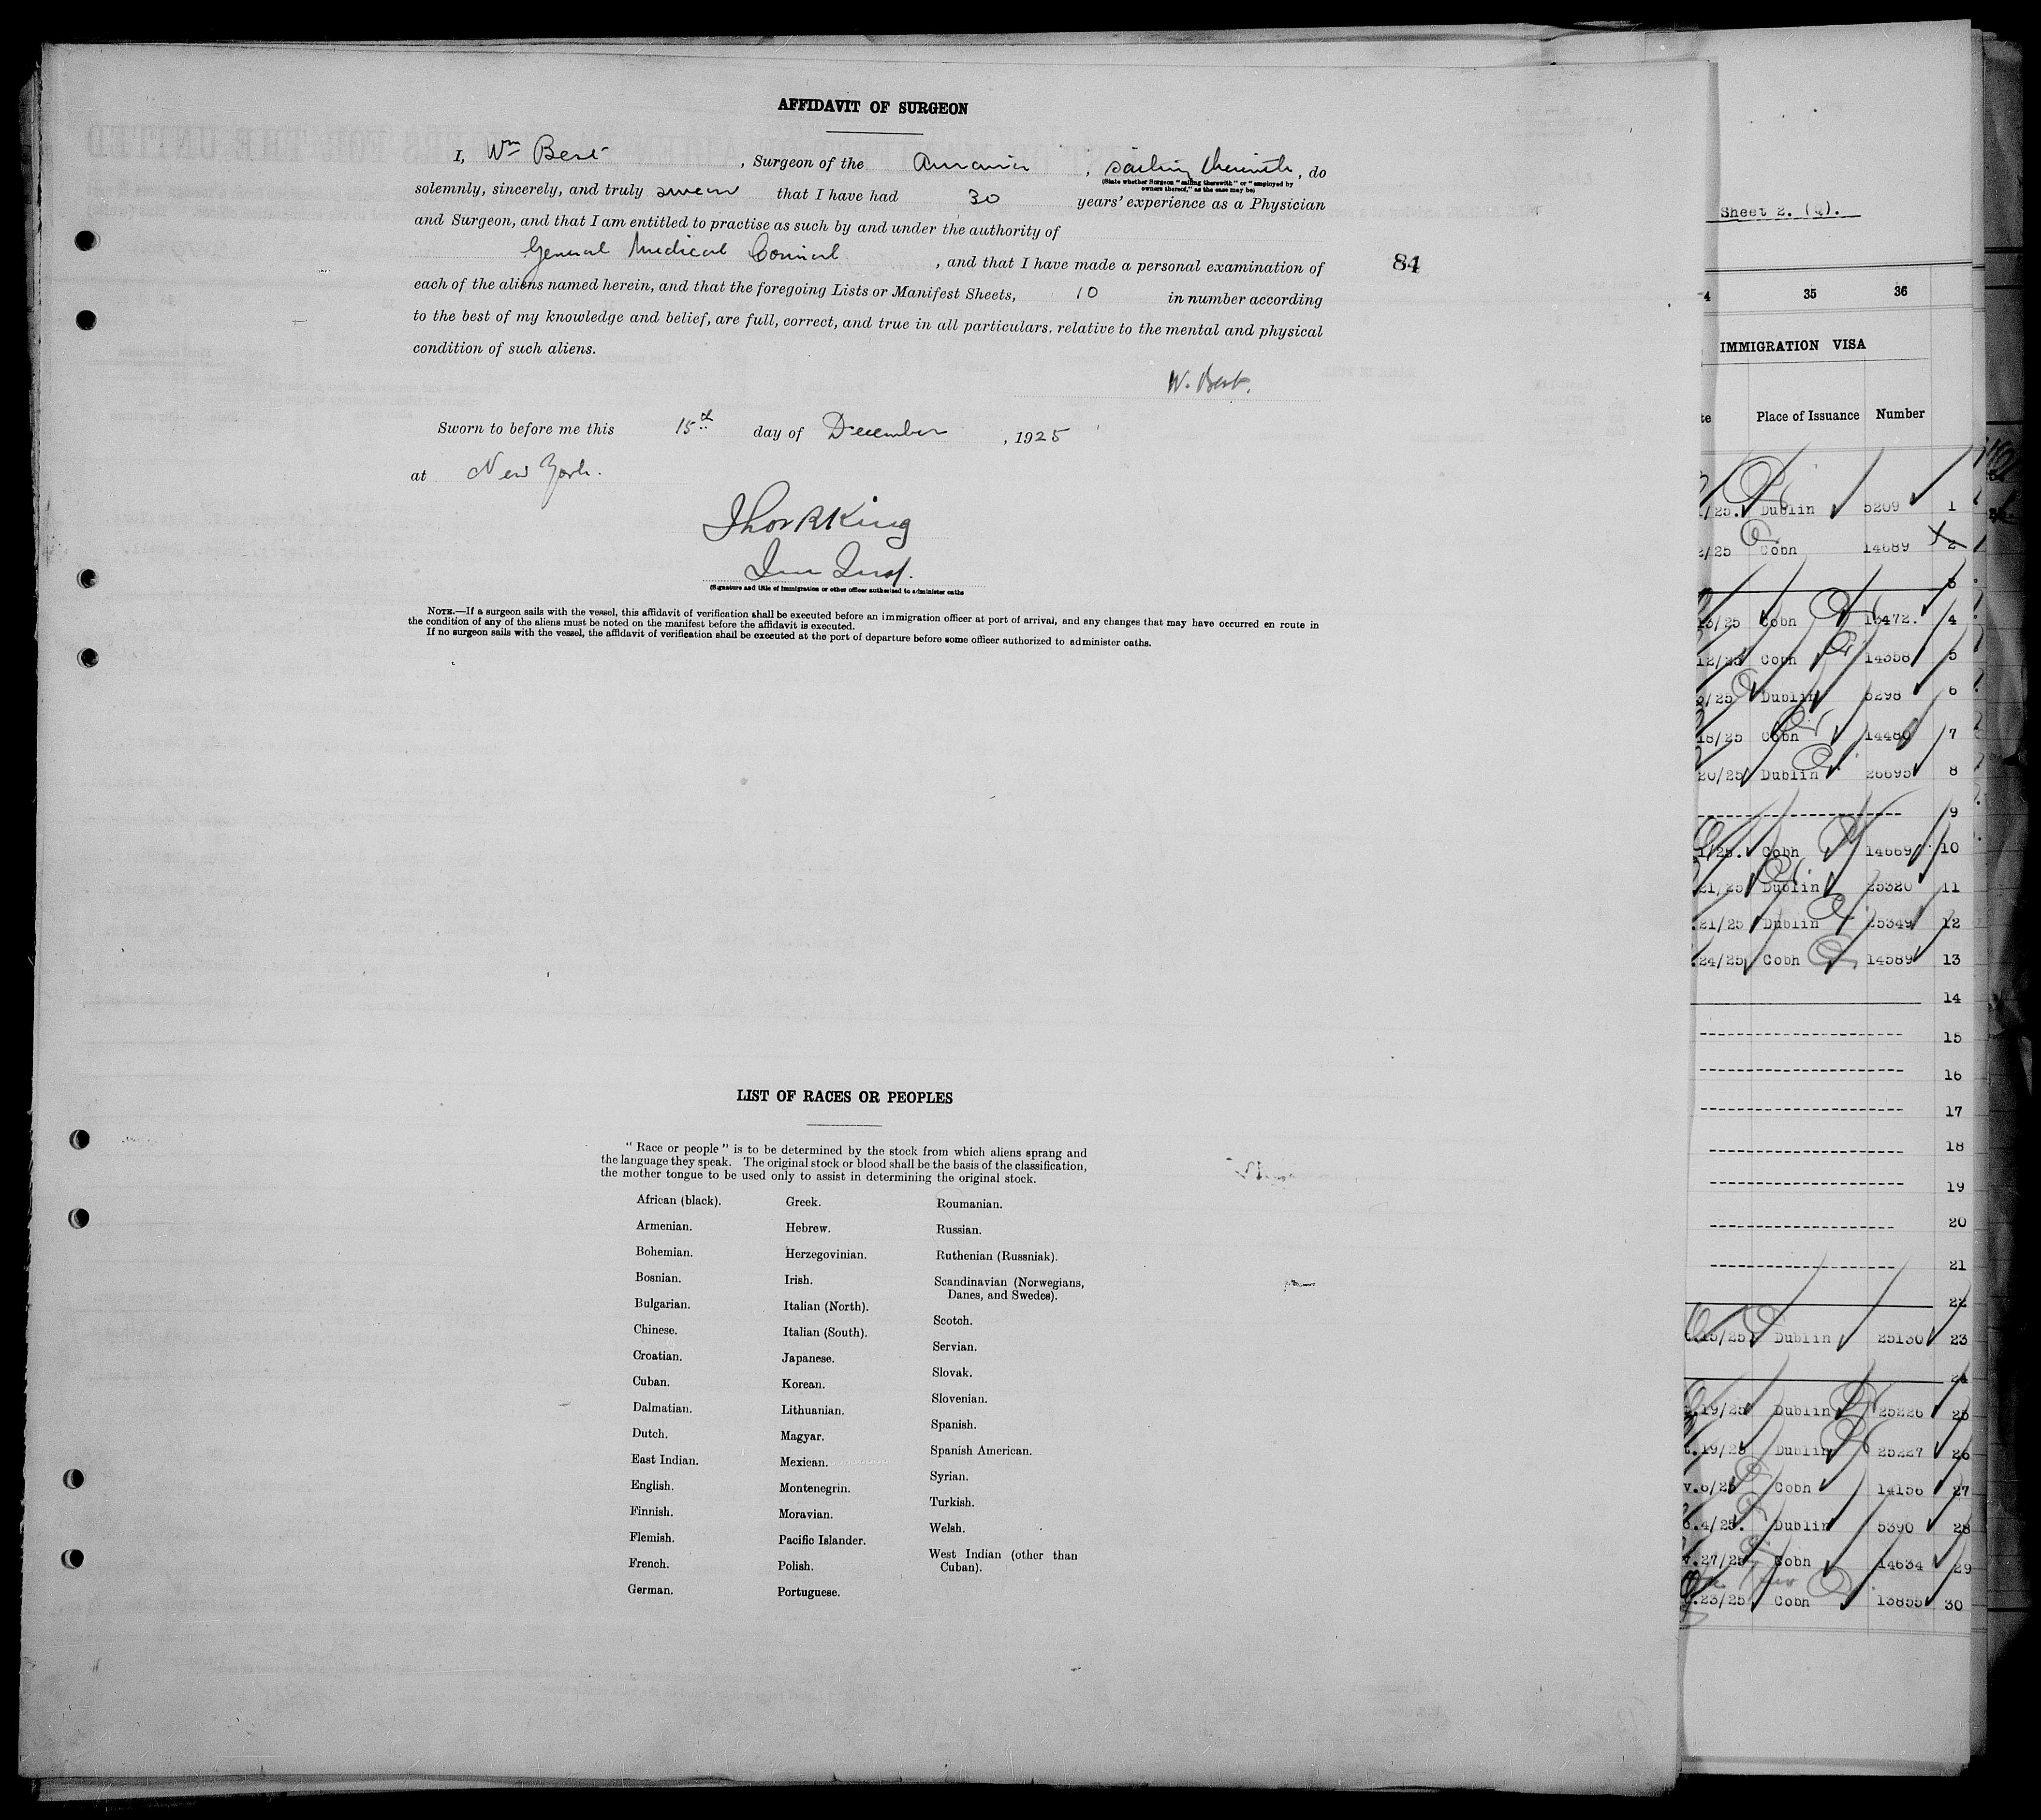 AFFIDAVIT OF SURGEON
I, Wm Bert, Surgeon of the Aurania, sailing therewith, do
(State whether Surgeon "sailing therewith" or "employed by
owners thereof," as the case may be)
solemnly, sincerely, and truly swear that I have had 30 years' experience as a Physician
and Surgeon, and that I am entitled to practise as such by and under the authority of
General Medical Council, and that I have made a personal examination of
84
each of the aliens named herein, and that the foregoing Lists or Manifest Sheets, 10 in number according
to the best of my knowledge and belief, are full, correct, and true in all particulars, relative to the mental and physical
condition of such aliens.
W. Bert.
Sworn to before me this 15th day of December, 1925
at New York.
Thor R King
Imm Insp.
(Signature and title of immigration or other officer authorized to administer oaths
NOTE.—If a surgeon sails with the vessel, this affidavit of verification shall be executed before an immigration officer at port of arrival, and any changes that may have occurred en route in
the condition of any of the aliens must be noted on the manifest before the affidavit is executed.
If no surgeon sails with the vessel, the affidavit of verification shall be executed at the port of departure before some officer authorized to administer oaths.
LIST OF RACES OR PEOPLES
"Race or people" is to be determined by the stock from which aliens sprang and
the language they speak. The original stock or blood shall be the basis of the classification,
the mother tongue to be used only to assist in determining the original stock.
African (black).
Armenian.
Bohemian.
Bosnian.
Bulgarian.
Chinese.
Croatian.
Cuban.
Dalmatian.
Dutch.
East Indian.
English.
Finnish.
Flemish.
French.
German.
Greek.
Hebrew.
Herzegovinian.
Irish.
Italian (North).
Italian (South).
Japanese.
Korean.
Lithuanian.
Magyar.
Mexican.
Montenegrin.
Moravian.
Pacific Islander.
Polish.
Portuguese.
Roumanian.
Russian.
Ruthenian (Russniak).
Scandinavian (Norwegians,
Danes, and Swedes).
Scotch.
Servian.
Slovak.
Slovenian.
Spanish.
Spanish American.
Syrian.
Turkish.
Welsh.
West Indian (other than
Cuban).
Sheet 2. (Q).
4 35 36
IMMIGRATION VISA
te Place of Issuance Number
1/25. Dublin 5209 1
2/25 Cobh 14689 2
3
13/25 Cobh 13472. 4
12/25 Cobh 14358 5
3/25 Dublin 5298 6
18/25 Cobh 14480 7
20/25 Dublin 26695 8
9
1/25. Cobh 14669 10
21/25 Dublin 25320 11
.21/25 Dublin 25349 12
.24/25 Cobh 14589 13
14
15
16
17
18
19
20
21
22
.15/25 Dublin 25130 23
24
.19/25 Dublin 25226 25
t.19/25 Dublin 25227 26
v.6/25 Cobh 14156 27
.4/25. Dublin 5390 28
v.27/25 Cobh 14634 29
.23/25 Cobh 13855 30